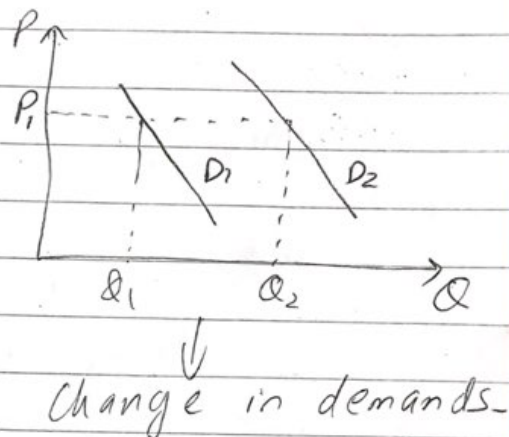 P
P₁
D₁ D₂
Q₁ Q₂ Q
Change in demands-